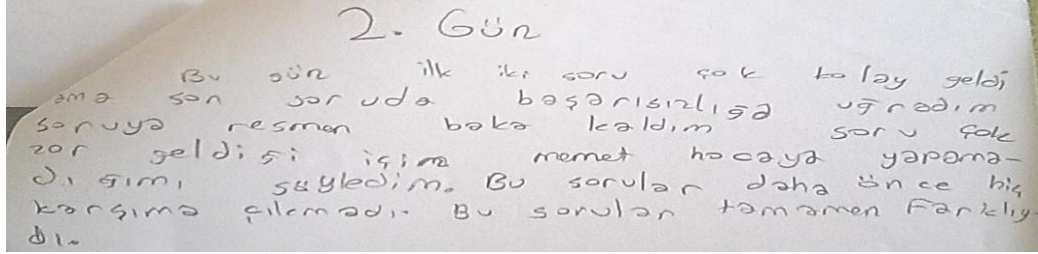 2. Gün
Bu gün ilk iki soru çok kolay geldi
ama son soruda başarısızlığa uğradım
soruya resmen baka kaldım soru çok
zor geldiği için memet hocaya yapama-
dığımı söyledim. Bu sorular daha önce hiç
karşıma çıkmadı. Bu sorular tamamen farklıy-
dı.